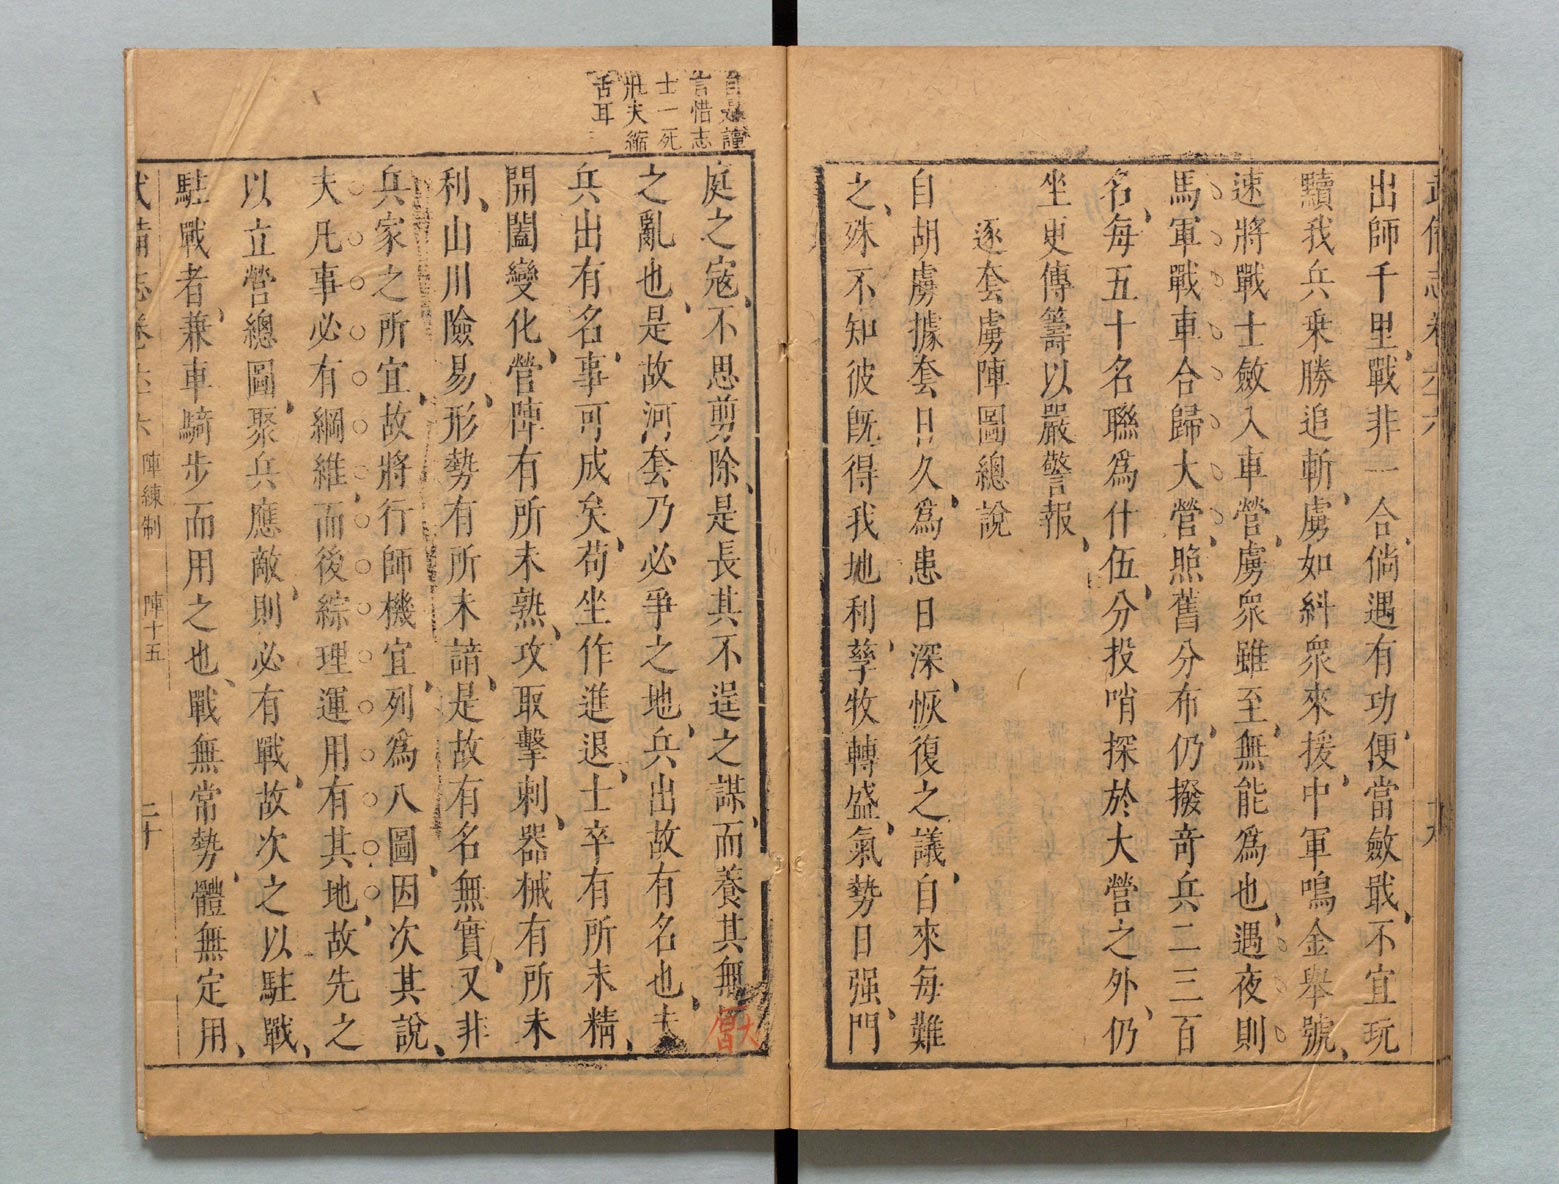 出師千里戰非一合倘遇有功便當斂戢不宜玩
黷我兵乗勝追斬虜如糾衆來援中軍鳴金舉號
速將戰士斂入車營虜衆雖至無能爲也遇夜則
馬軍戰車合歸大營照舊分布仍撥奇兵二三百
名每五十名聯爲什伍分投哨探於大營之外仍
坐更傳籌以嚴警報
逐套虜陣圖總說
自胡虜據套日久爲患日深恢復之議自來每難
之殊不知彼旣得我地利孳牧轉盛氣勢日强門
自是讜
言惜志
士一死
夫縮
舌耳
庭之寇不思剪除是長其不逞之謀而養其無
之亂也是故河套乃必爭之地兵出故有名也夫
兵出有名事可成矣苟坐作進退士卒有所未精
開闔變化營陣有所未熟攻取擊刺器械有所未
利山川險易形勢有所未諳是故有名無實又非
兵家之所宜故將行師機宜列爲八圖因次其說
夫凡事必有綱維而後綜理運用有其地故先之
以立營總圖聚兵應敵則必有戰故次之以駐戰
駐戰者兼車騎步而用之也戰無常勢體無定用
武備志卷六十六 陣練制 陣十五 二十